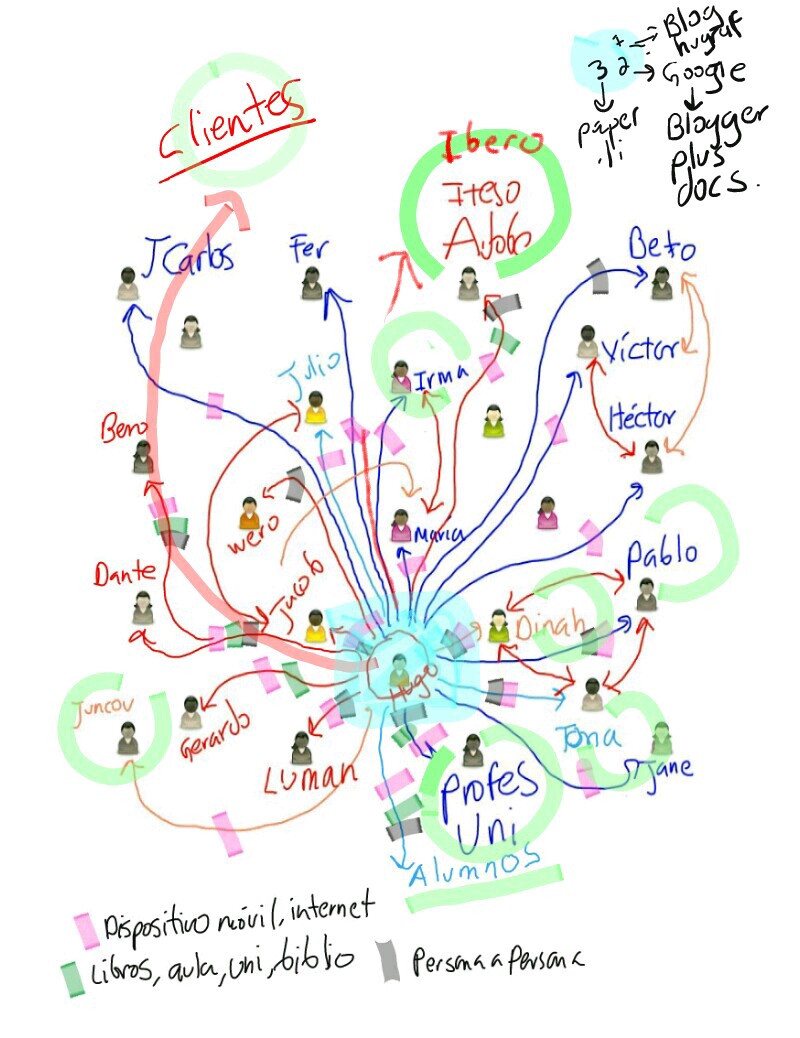 Blog
hugraf
1
3 2
Google
paper
.li
Blogger
plus
docs.
Clientes
Ibero
Iteso
JCarlos
Fer
Beto
Víctor
Julio
Irma
Héctor
Beno
wero
María
Dante
Jacob
Pablo
Dinah
Hugo
Juncou
Gerardo
Luman
Jona
Jane
Profes
Uni
Alumnos
Dispositivo móvil, internet
Libros, aula, uni, biblio
Persona a Persona